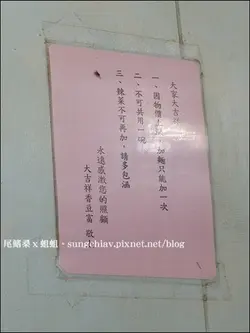 大家大吉祥
一、因物價 加麵只能加一次
二、不可共用一碗
三、辣菜不可再加,請多包涵
永遠感激您的照顧
大吉祥香豆富 敬
尾鰭桑 x 蛆蛆、sungchiav.pixnet.net/blog